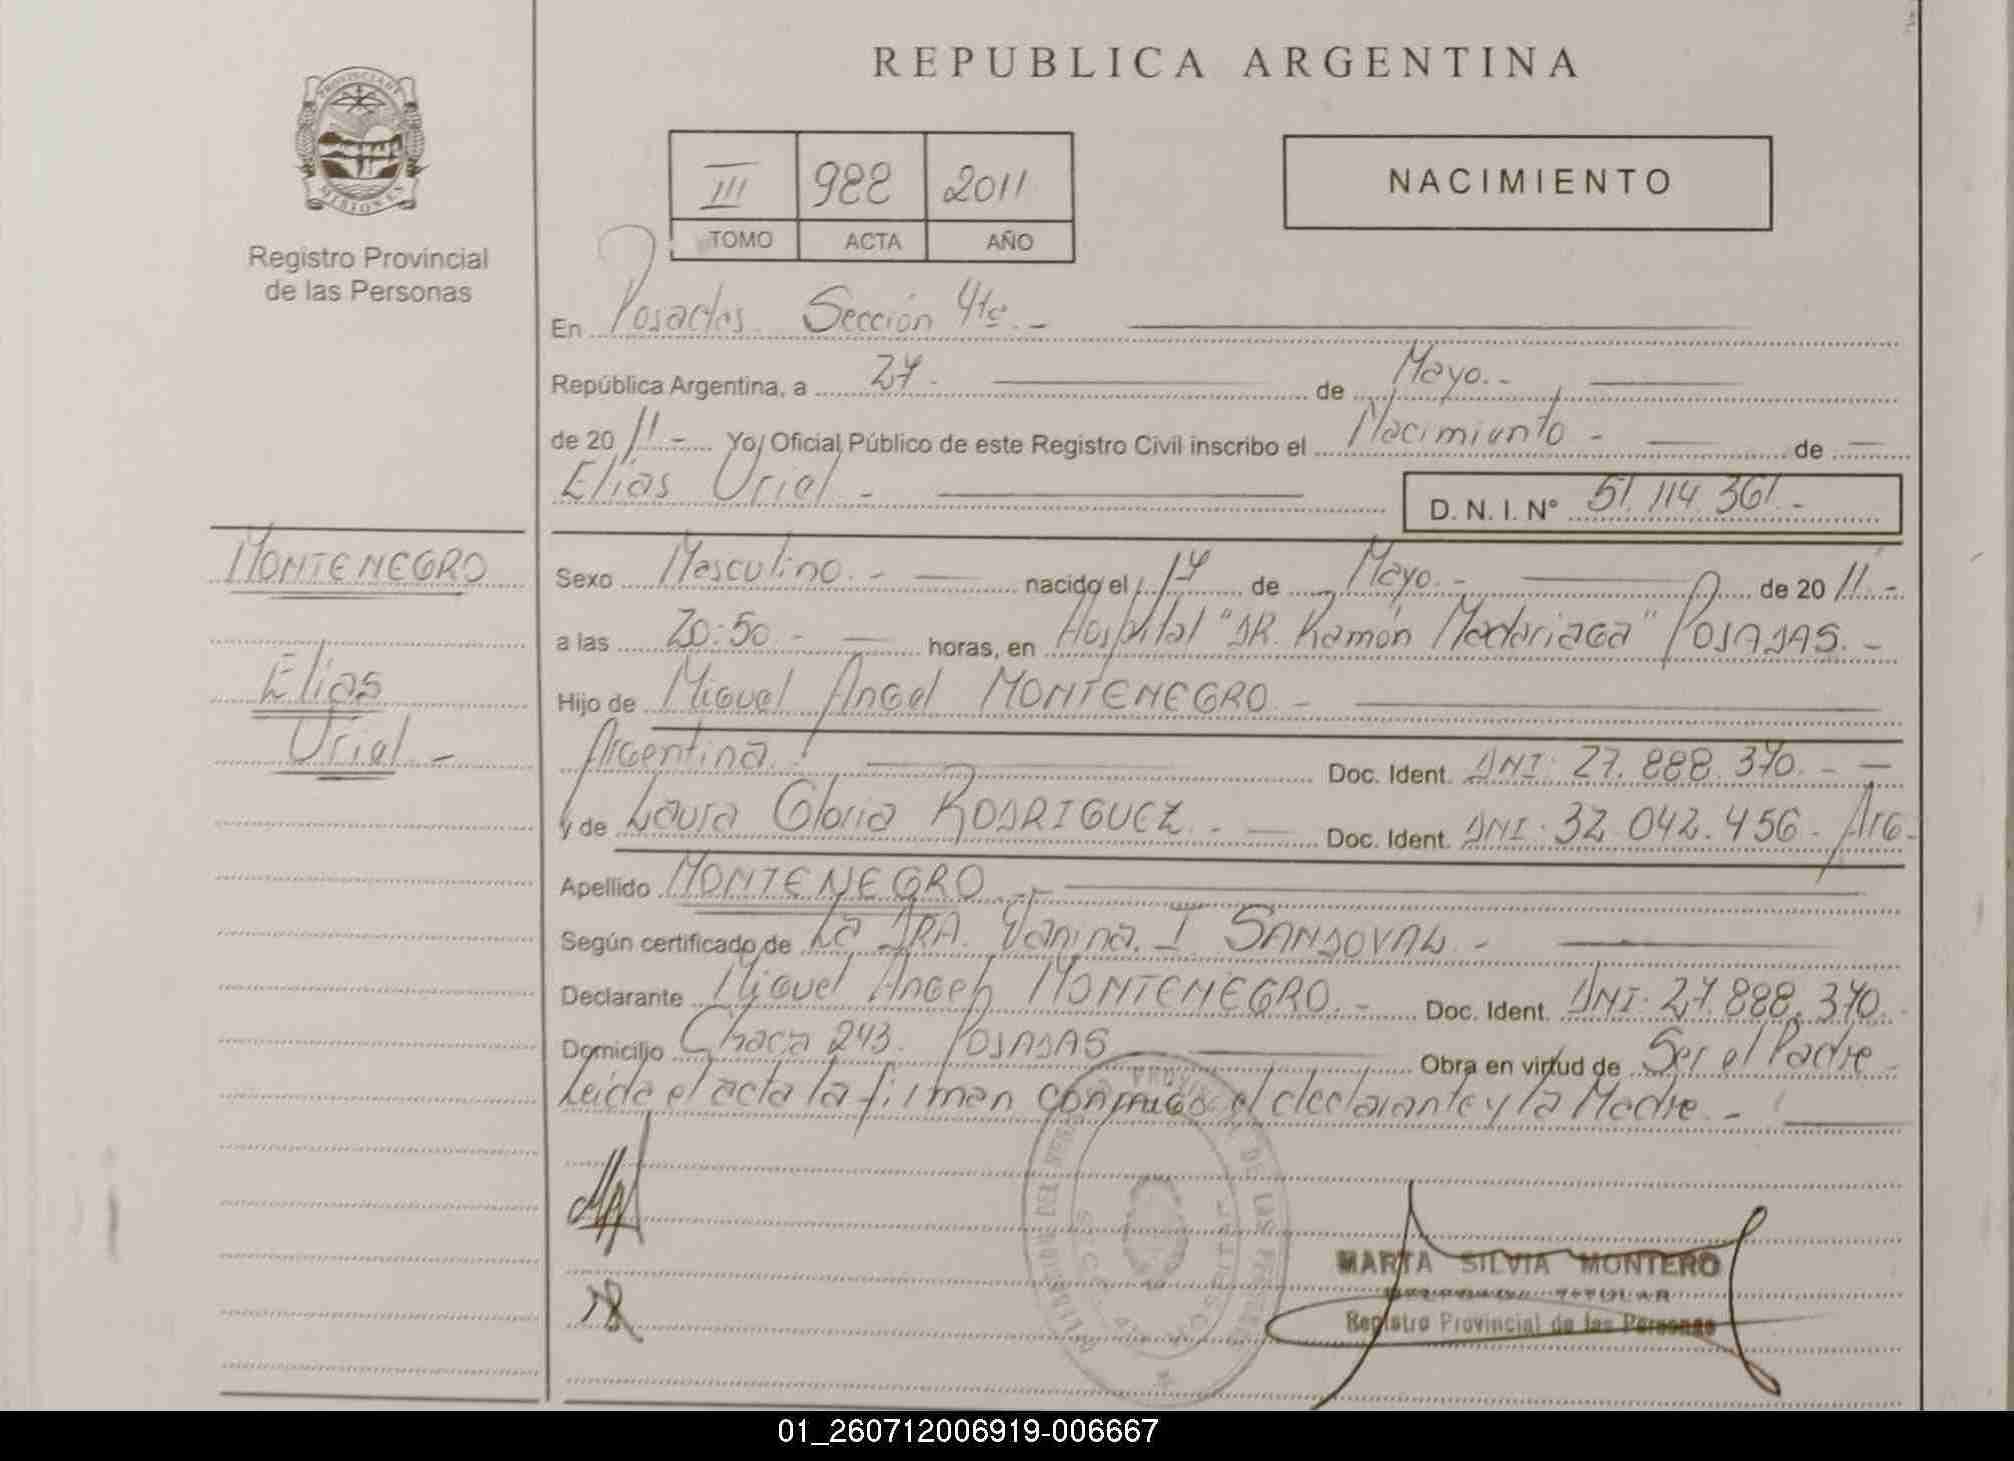 REPUBLICA ARGENTINA
PROVINCIA DE
MISIONES
Registro Provincial
de las Personas
III 988 2011
TOMO ACTA AÑO
NACIMIENTO
En Posadas Sección 4ta.-
República Argentina, a 27.- de Mayo.-
de 20 11.- Yo, Oficial Público de este Registro Civil inscribo el Nacimiento - de
Elias Uriel -
D. N. I. N° 51.114.361.-
MONTENEGRO
Elias
Uriel.-
Sexo Masculino.- nacido el 17 de Mayo.- de 20 11.-
a las 20:50.- horas, en Hospital "DR. Ramón Madariaga" POSADAS.-
Hijo de Miguel Angel MONTENEGRO -
Argentina. Doc. Ident. DNI: 27.888.370.- -
y de Laura Gloria RODRIGUEZ.- Doc. Ident. DNI: 32.042.456. Arg-
Apellido MONTENEGRO.-
Según certificado de La DRA. Vanina. I SANDOVAL.-
Declarante Miguel Angel MONTENEGRO.- Doc. Ident. DNI: 27.888.370.-
Domicilio Chaca 243. POSADAS Obra en virtud de Ser el Padre -
Leida el acta la firman conmigo el declarante y la Madre.-
MARTA SILVIA MONTERO
TITULAR
Registro Provincial de las Personas
01_260712006919-006667